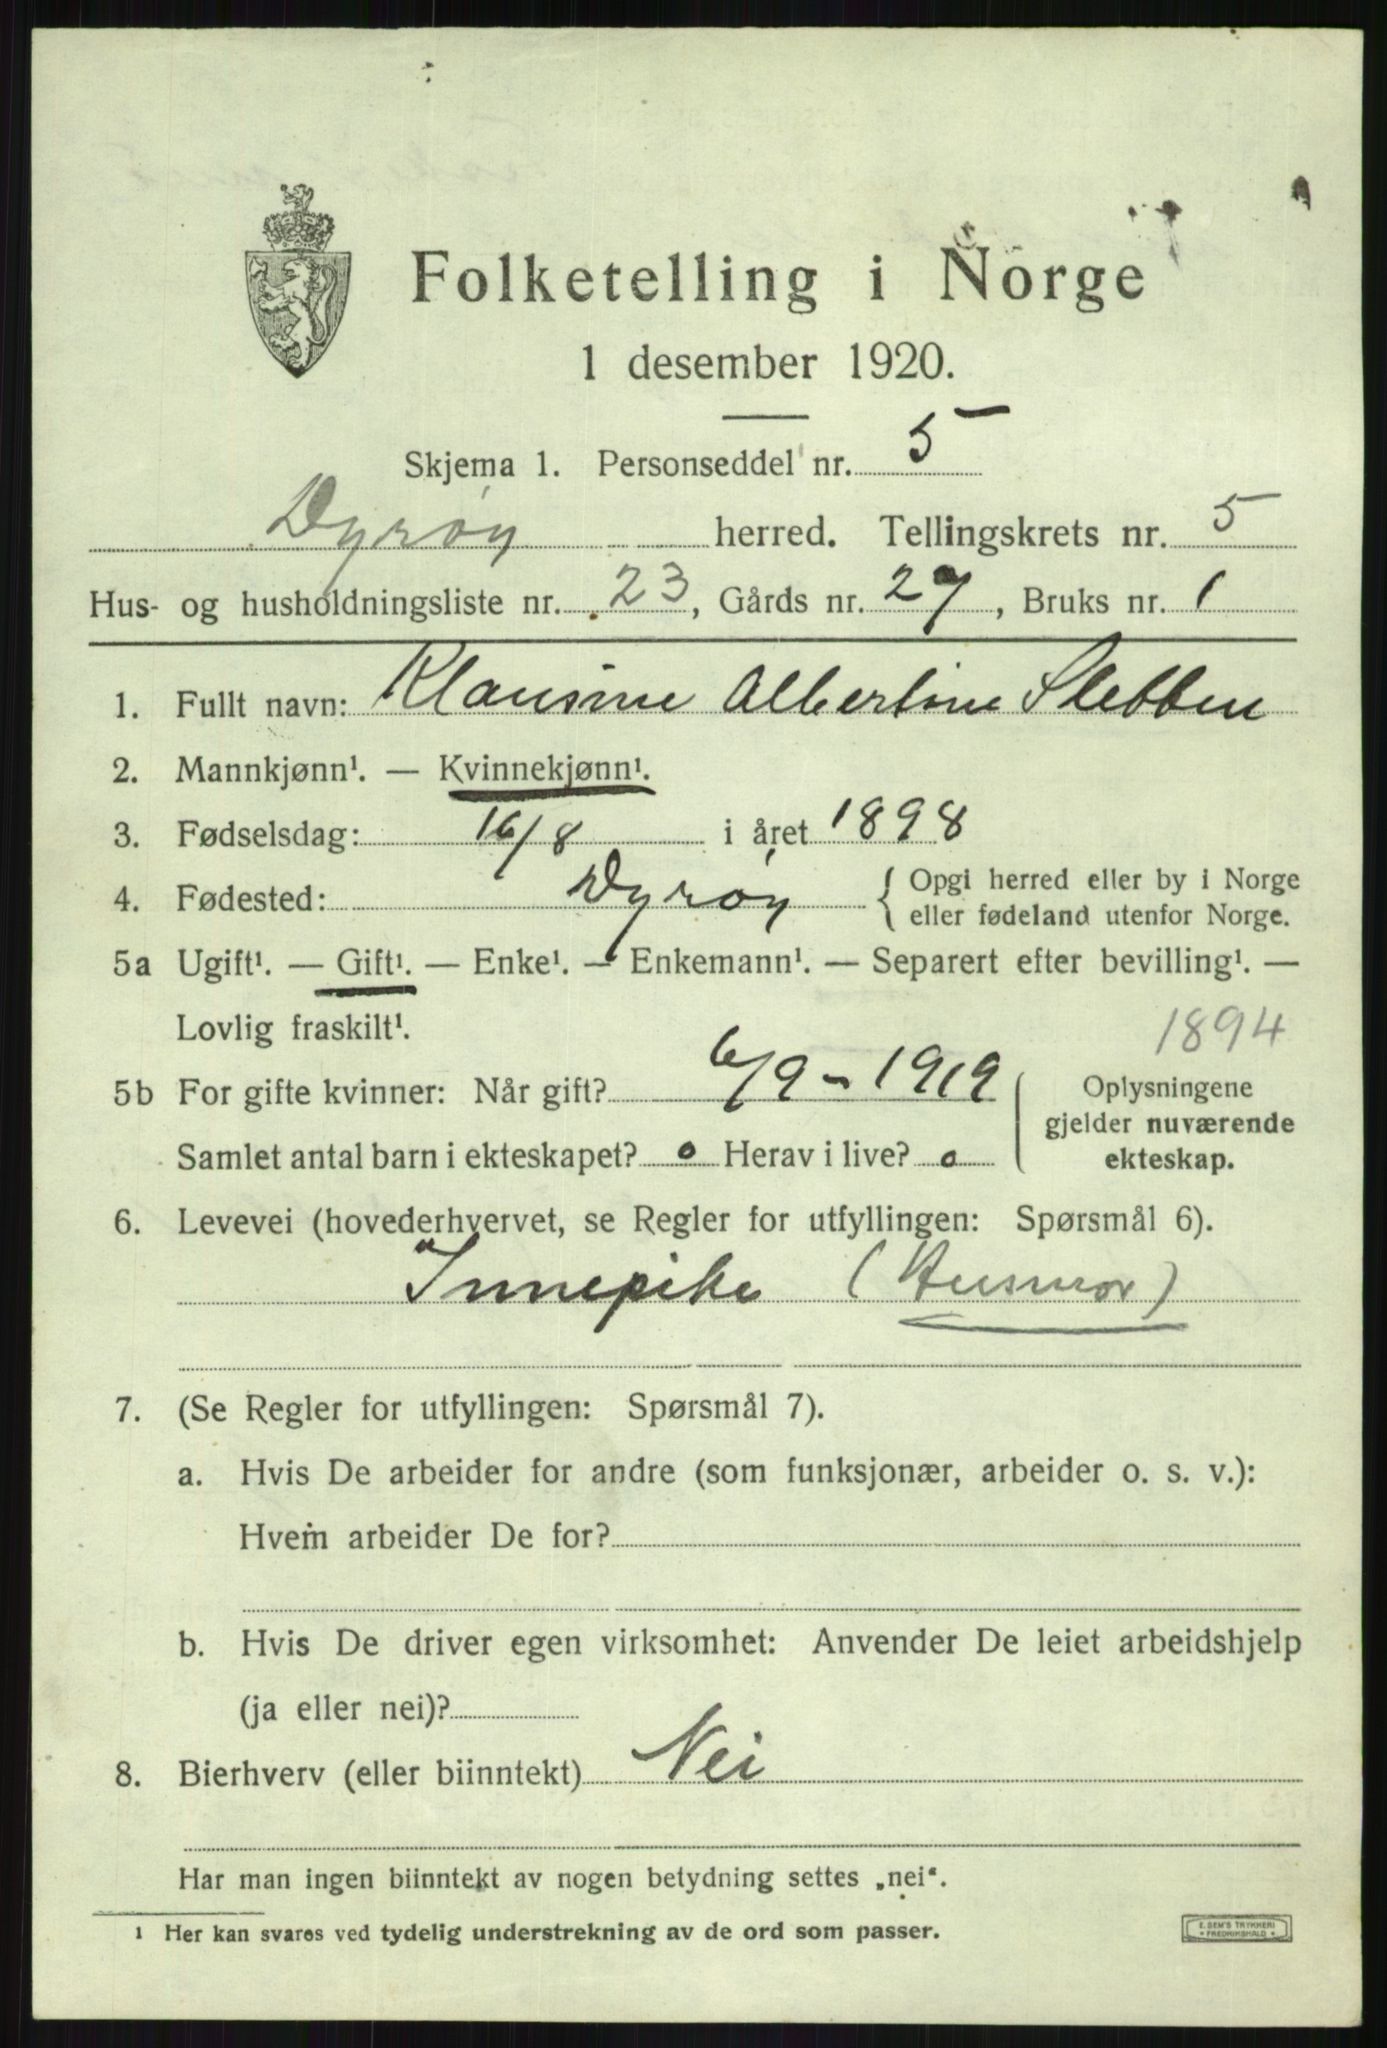 Folketelling i Norge
1 desember 1920.
Skjema 1. Personseddel nr. 5
Dyrøy herred. Tellingskrets nr. 5
Hus- og husholdningsliste nr. 23, Gårds nr. 27, Bruks nr. 1
1. Fullt navn: Klausine Albertine Stebben
2. Mannkjønn¹. — Kvinnekjønn¹.
3. Fødselsdag: 16/8 i året 1898
4. Fødested: Dyrøy { Opgi herred eller by i Norge
eller fødeland utenfor Norge.
5a Ugift¹. — Gift¹. — Enke¹. — Enkemann¹. — Separert efter bevilling¹. —
Lovlig fraskilt¹.
1894
5b For gifte kvinner: Når gift? 6/9 - 1919
Samlet antal barn i ekteskapet? 0 Herav i live? 0
Oplysningene
gjelder nuværende
ekteskap.
6. Levevei (hovederhvervet, se Regler for utfyllingen: Spørsmål 6).
Innepike (Husmor)
7. (Se Regler for utfyllingen: Spørsmål 7).
a. Hvis De arbeider for andre (som funksjonær, arbeider o. s. v.):
Hvem arbeider De for?
b. Hvis De driver egen virksomhet: Anvender De leiet arbeidshjelp
(ja eller nei)?
8. Bierhverv (eller biinntekt) Nei
Har man ingen biinntekt av nogen betydning settes „nei“.
1 Her kan svares ved tydelig understrekning av de ord som passer.
E. SEM'S TRYKKERI
* FREDRIKSHALD *